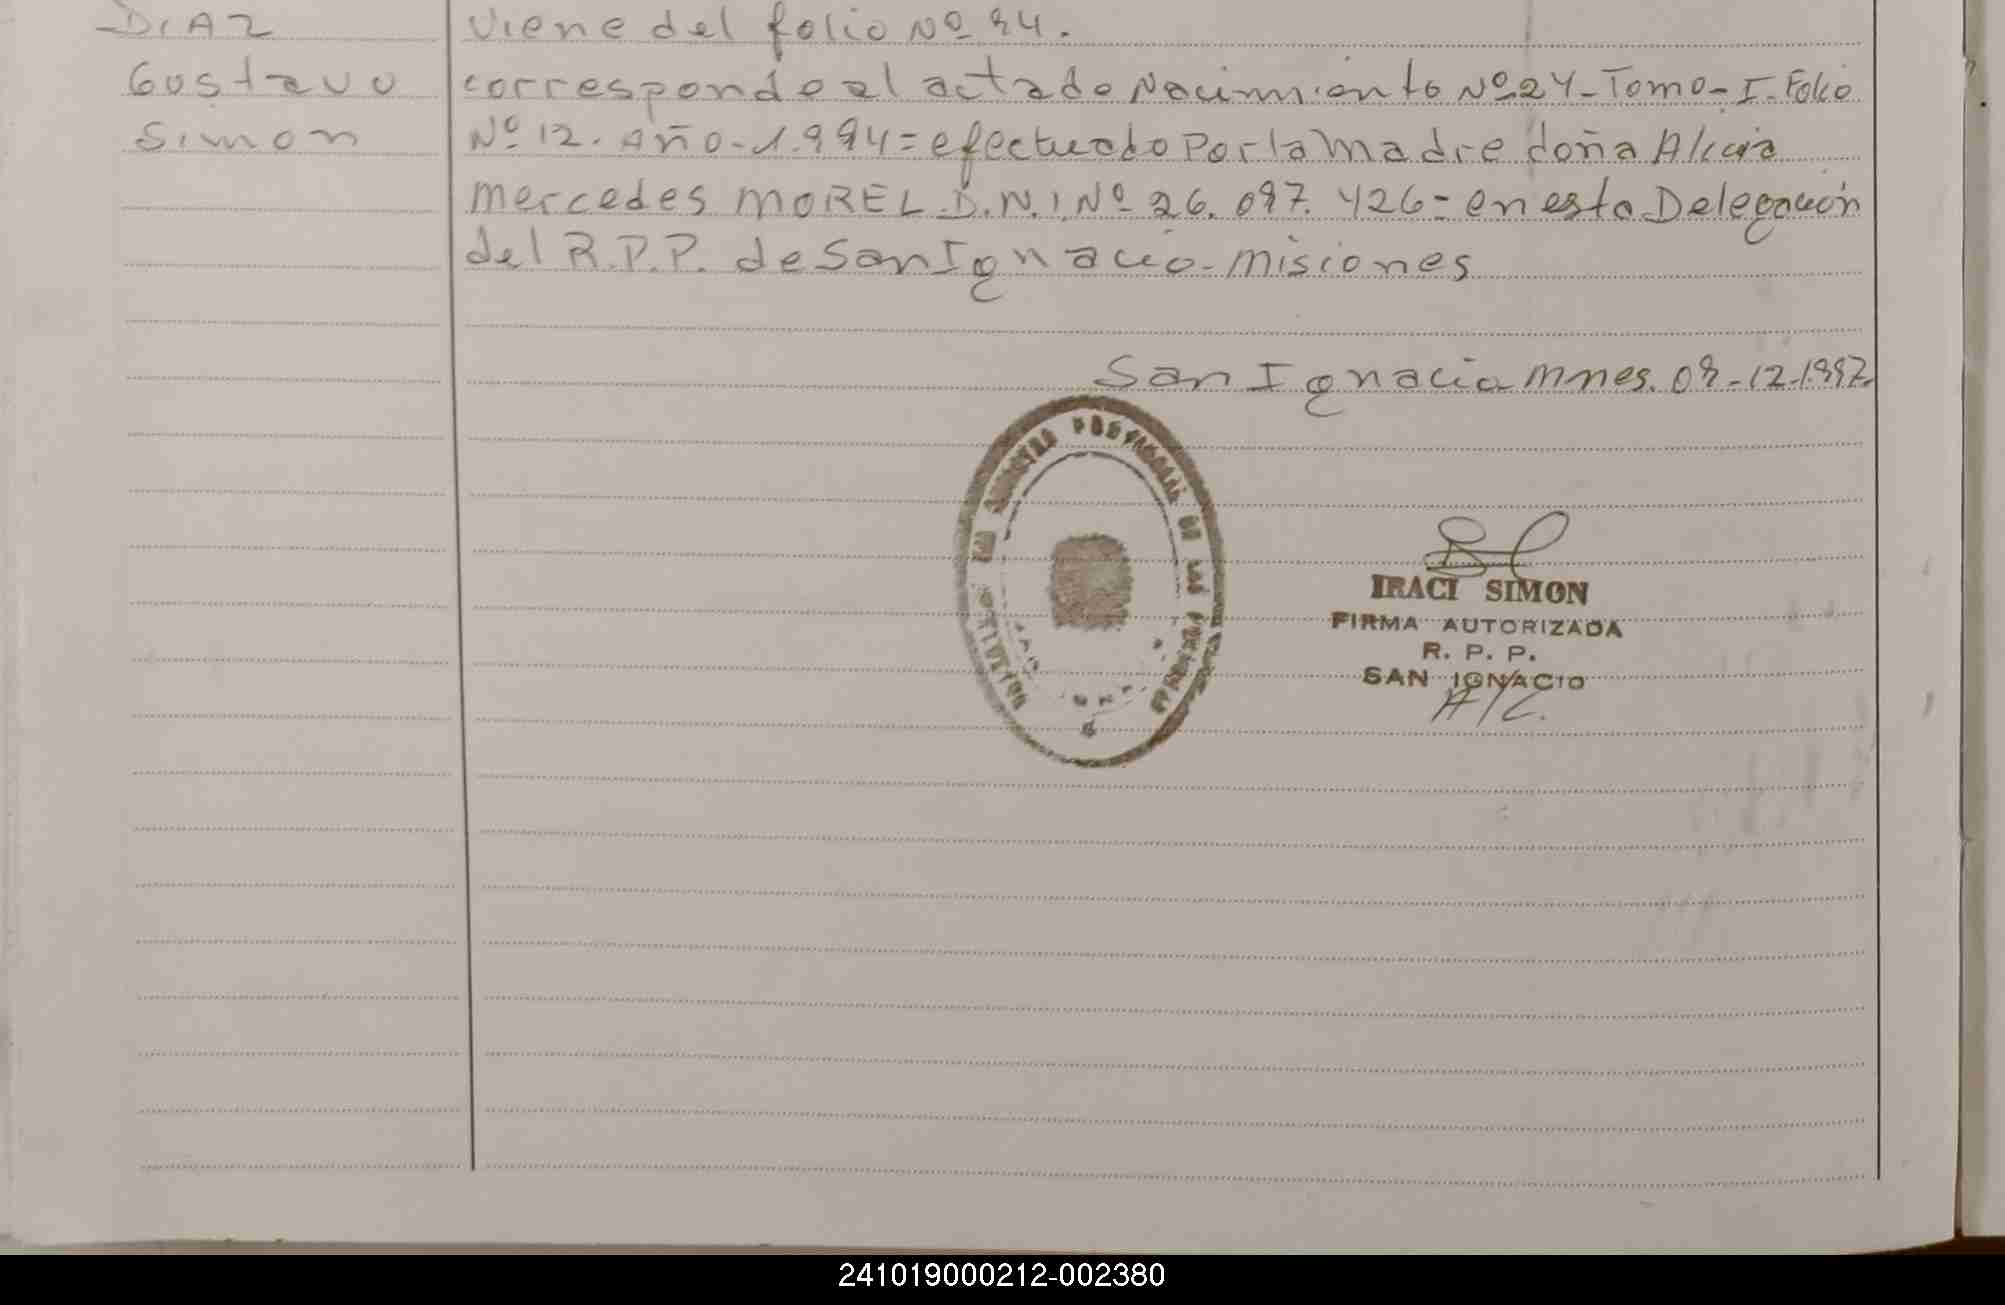 DIAZ
Gustavo
Simon
Viene del folio Nº 94.
corresponde al acta de Nacimiento Nº 24 - Tomo - I. Folio
Nº 12. Año - 1.994 = efectuado Por la Madre doña Alicia
mercedes MOREL D.N.I. Nº 26.097.426 = en esta Delegación
del R.P.P. de San Ignacio - misiones
San Ignacio Mnes. 09-12-1997.
PROVINCIAL DE LAS PERSONAS
IRACI SIMON
FIRMA AUTORIZADA
R. P. P.
SAN IGNACIO
A/C.
241019000212-002380